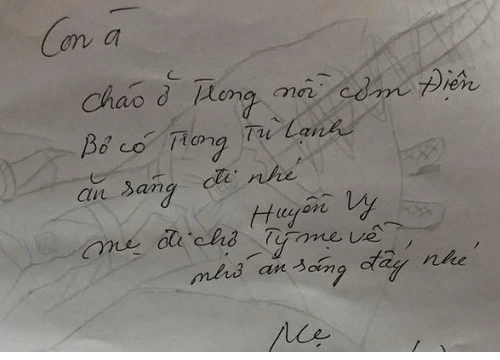 Con à
cháo ở trong nồi cơm Điện
Bò có trong Tủ lạnh
ăn sáng đi nhé
Huyền Vy
mẹ đi chợ Tý mẹ về
nhớ ăn sáng đấy nhé
Mẹ